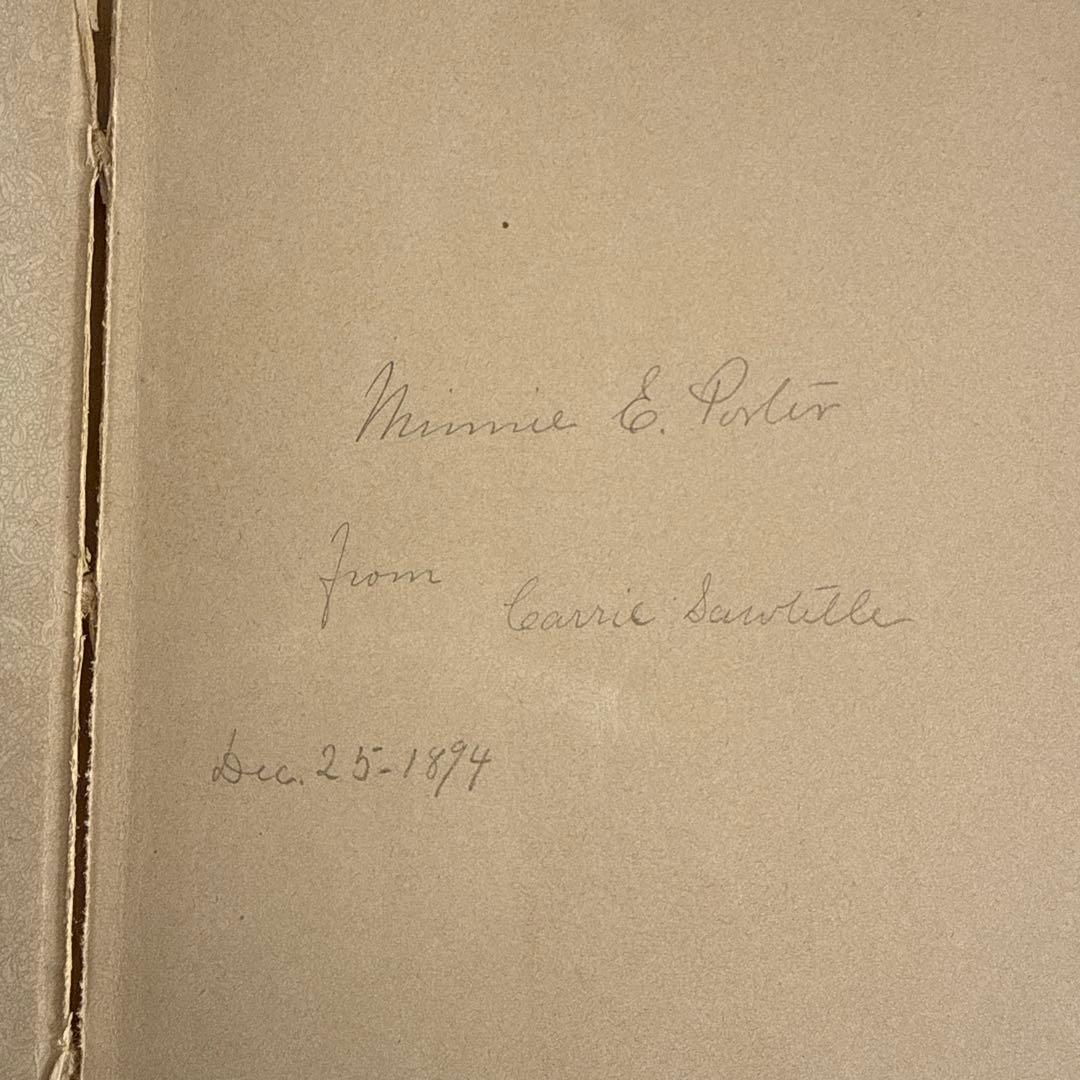 Minnie E. Porter
from
Carrie Sawtelle
Dec. 25-1894